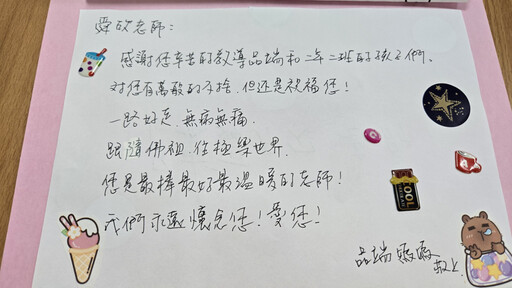 舜欣老師：
感謝您辛苦的教導品瑞和二年二班的孩子們、
對您有萬般的不捨，但还是祝福您！
一路好走，無病無痛，
跟隨佛祖，往極樂世界，
您是最棒最好最溫暖的老師！
我們永遠懷念您！愛您！
品瑞媽媽
敬上
COOL